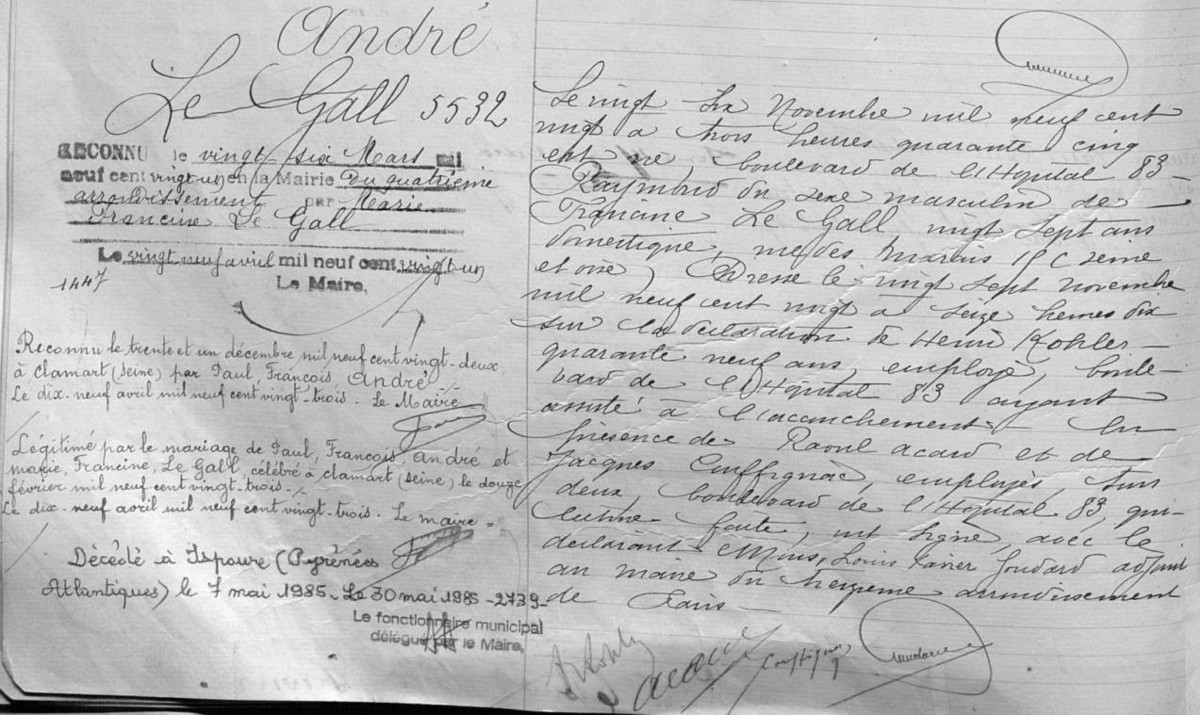 André
Le Gall 5532
RECONNU le vingt-six Mars mil
neuf cent vingt un en la Mairie du quatrième
arrondissement par Marie
Francine Le Gall
Le vingt neuf avril mil neuf cent vingt-un
Le Maire,
1447
Reconnu le trente et un décembre mil neuf cent vingt-deux
à Clamart (Seine) par Paul François, André
Le dix-neuf avril mil neuf cent vingt-trois - Le Maire
Légitimé par le mariage de Paul, François André et
Marie, Francine, Le Gall, célébré à Clamart (Seine) le douze
février mil neuf cent vingt-trois.
Le dix-neuf avril mil neuf cent vingt-trois. Le maire =
Décédé à Ispoure (Pyrénées
Atlantiques) le 7 mai 1985. Le 30 mai 1985 -2739-
Le fonctionnaire municipal
délégué par le Maire,
Le vingt six Novembre mil neuf cent
vingt à trois heures quarante cinq
est né, boulevard de l'Hôpital 83 -
Raymond du sexe masculin de -
Francine Le Gall vingt sept ans
domestique, Seine
et oise, Dressé le vingt sept novembre
mil neuf cent vingt à seize heures dix
sur la déclaration de Henri Kohler -
quarante neuf ans, employé, boule-
vard de l'Hôpital 83 ayant
assisté à l'accouchement. En
présence de Raoul Acard et de
Jacques Cuffignac, employés, tous
deux, boulevard de l'Hôpital 83, qui-
lecture faite, ont signé, avec le
déclarant et Nous, Louis Xavier adjoint
au maire du treizième arrondissement
de Paris -
Kohler
Acard